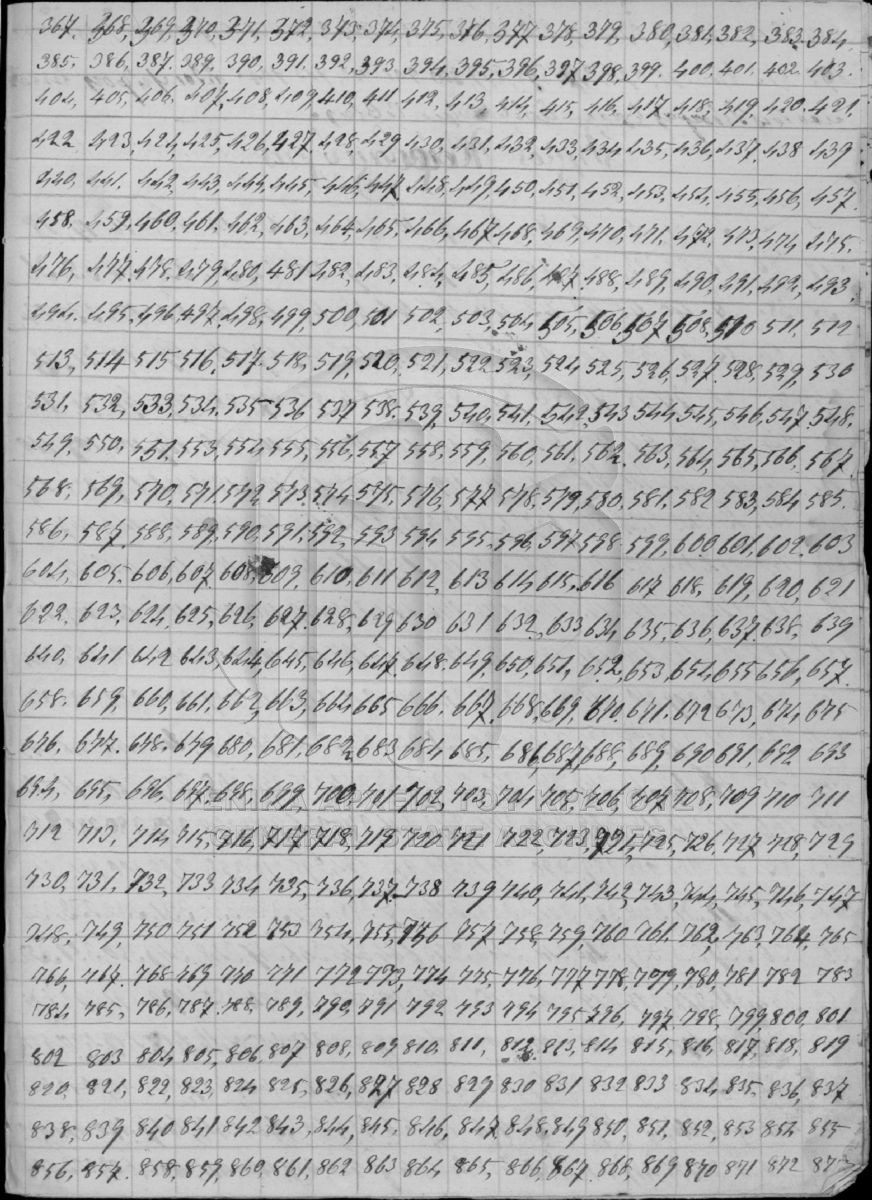 367. 368, 369, 370, 371, 372, 373, 374, 375, 376, 377 378, 379, 380, 381, 382, 383. 384.
385. 386, 387. 389, 390, 391. 392, 393. 394, 395, 396, 397 398, 399. 400. 401. 402. 403.
404, 405, 406. 407, 408, 409, 410, 411 412, 413, 414, 415, 416, 417. 418, 419, 420. 421,
422 423, 424, 425, 426, 427 428, 429 430, 431, 432, 433, 434 435, 436, 437, 438 439
440, 441. 442, 443, 444, 445, 446, 447 448, 449, 450, 451, 452, 453, 454, 455, 456, 457.
458. 459, 460, 461. 462, 463, 464, 465, 466, 467 468, 469, 470, 471. 472, 473, 474 475.
476, 477. 478. 479, 480, 481 482, 483. 484, 485, 486, 487. 488, 489, 490, 491, 492, 493.
494. 495. 496, 497. 498, 499, 500, 501 502, 503, 504, 505, 506 507 508, 510 511, 512
513, 514 515 516, 517. 518, 519, 520, 521, 522 523, 524, 525, 526, 527. 528, 529, 530
531, 532, 533, 534, 535 536 537 538. 539, 540, 541, 542, 543 544, 545, 546, 547 548.
549, 550, 551. 553, 554, 555, 556, 557 558. 559, 560, 561. 562. 563, 564, 565, 566. 567
568. 569, 570, 571, 572, 573. 574 575, 576, 577 578, 579, 580. 581. 582 583, 584 585.
586, 587. 588. 589, 590, 591, 592, 593 594 595, 596, 597 598. 599, 600 601, 602. 603
604, 605. 606, 607. 608, 609, 610, 611 612, 613 614 615, 616 617 618, 619, 620, 621
622. 623, 624, 625, 626, 627. 628, 629 630 631 632, 633 634, 635, 636, 637 638, 639
640, 641 642 643, 644, 645, 646, 647. 648. 649, 650, 651, 652, 653 654, 655 656, 657.
658. 659, 660, 661. 662, 663, 664 665 666. 667 668, 669, 670, 671. 672 673, 674, 675
676. 677. 678. 679 680, 681, 682, 683 684 685, 686, 687, 688, 689, 690 691, 692 693
694, 695, 696, 697. 698, 699, 700, 701 702, 703, 704 705, 706, 707 708, 709 710 711
712 713, 714 715, 716, 717 718, 719 720 721 722, 723, 724, 725, 726, 727 728, 729
730, 731, 732, 733 734 735, 736, 737 738 739 740, 741, 742, 743, 744, 745, 746, 747
748, 749, 750 751 752 753 754, 755, 756 757 758, 759, 760 761, 762, 763, 764, 765
766 767. 768 769 770 771 772 773, 774 775, 776, 777 778, 779, 780, 781 782 783
784, 785, 786, 787, 788, 789, 790, 791 792 793 794 795 796, 797, 798, 799, 800, 801
802 803 804, 805, 806 807 808, 809 810, 811, 812. 813, 814 815, 816, 817, 818, 819
820, 821, 822, 823, 824 825, 826, 827 828 829 830 831 832 833 834, 835. 836, 837
838, 839 840 841 842 843, 844, 845. 846, 847. 848, 849 850, 851, 852, 853 854 855
856, 857. 858, 859, 860, 861, 862 863 864 865, 866, 867. 868, 869 870 871 872 873